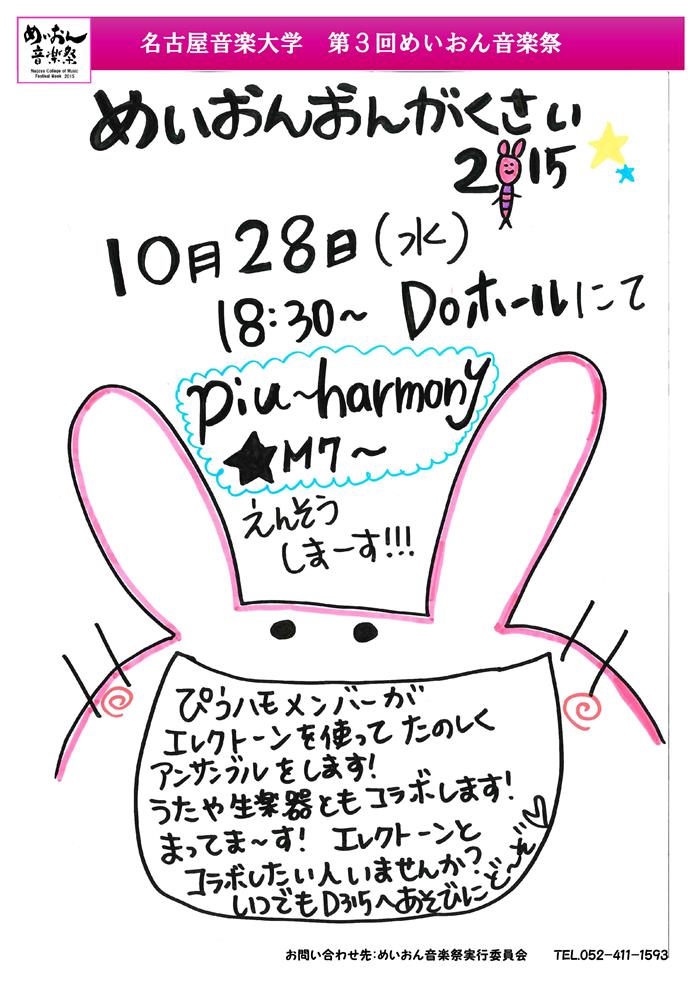 めいおん
音楽祭
Nagoya College of Music
Festival Week 2015
名古屋音楽大学　第３回めいおん音楽祭
めいおんおんがくさい
2015
10月28日(水)
18:30～ Doホールにて
piu～harmony
★M7～
えんそう
しまーす!!!
ぴうハモメンバーが
エレクトーンを使って たのしく
アンサンブルをします!
うたや生楽器ともコラボします!
まってま～す! エレクトーンと
コラボしたい人いませんか?
いつでもD315へあそびにど～ぞ♡
お問い合わせ先:めいおん音楽祭実行委員会　TEL.052-411-1593